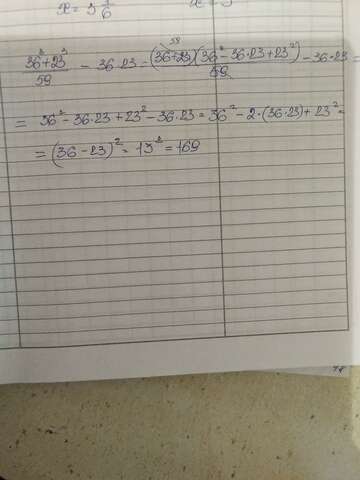 x = 3 1/6
(36³+23³)/59 - 36·23 = (36+23)(36² - 36·23 + 23²)/59 - 36·23 =
59
= 36² - 36·23 + 23² - 36·23 = 36² - 2·(36·23) + 23² =
= (36 - 23)² = 13² = 169